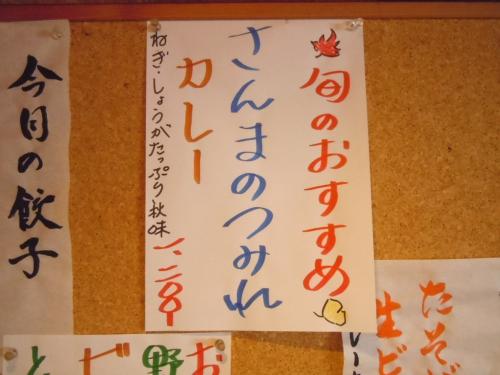 旬のおすすめ
さんまのつみれ
カレー
ねぎ・しょうがたっぷり秋味
一、二〇〇
今日の餃子
たそが
生ビ
レー
お
野
ピ
と